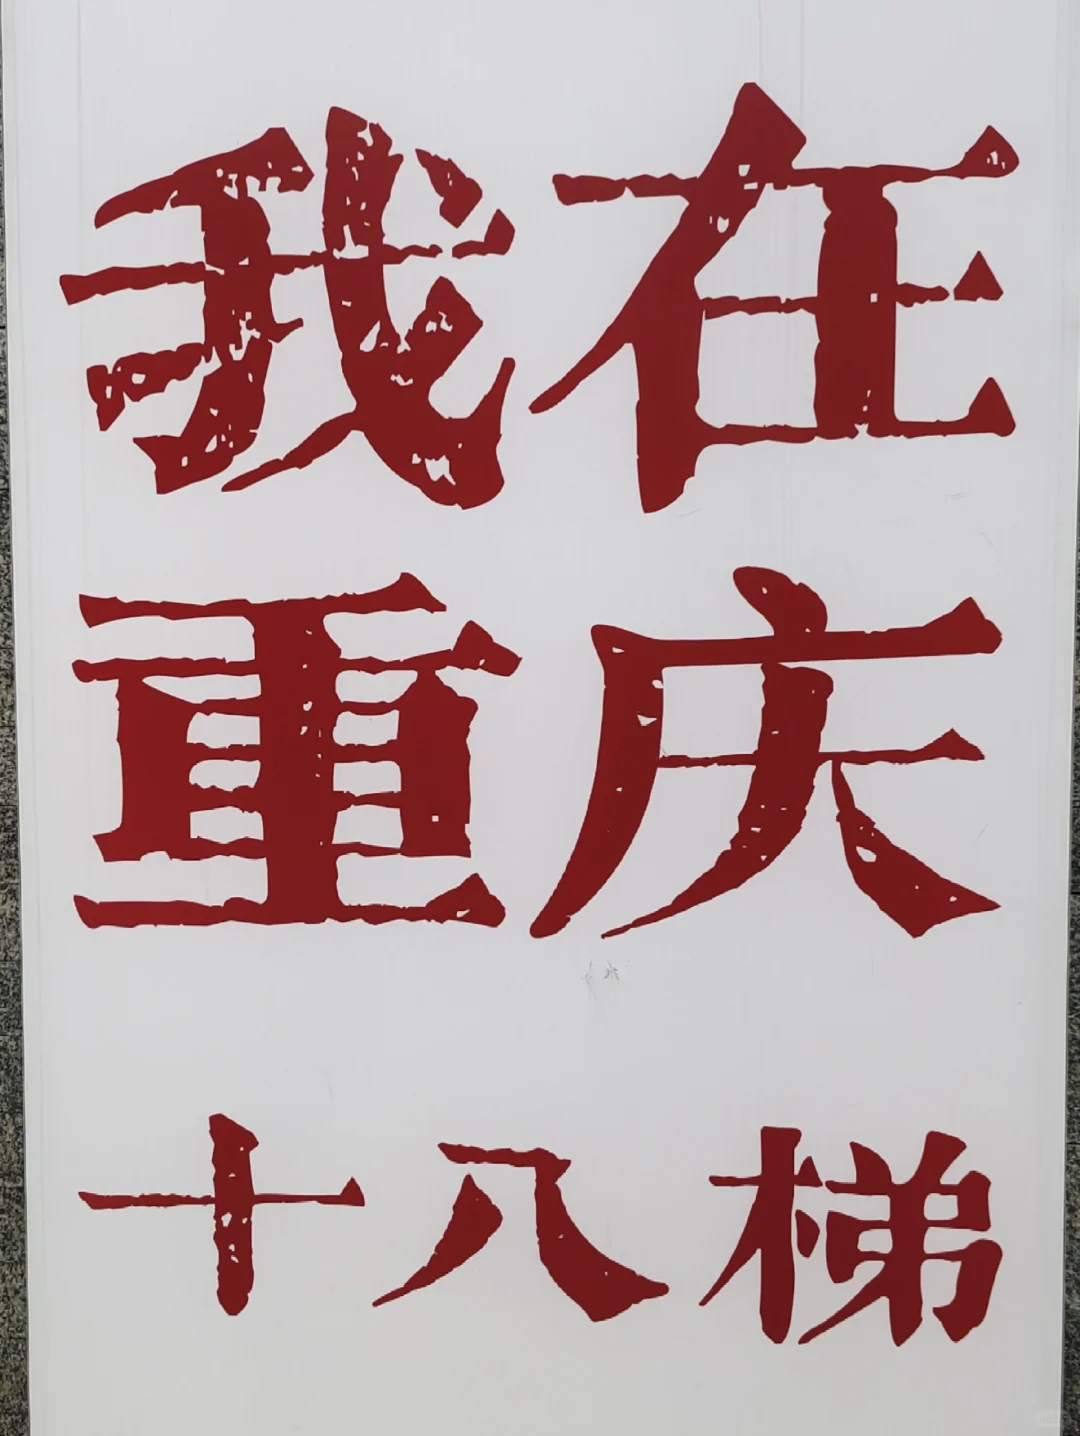 我在
重庆
十八梯